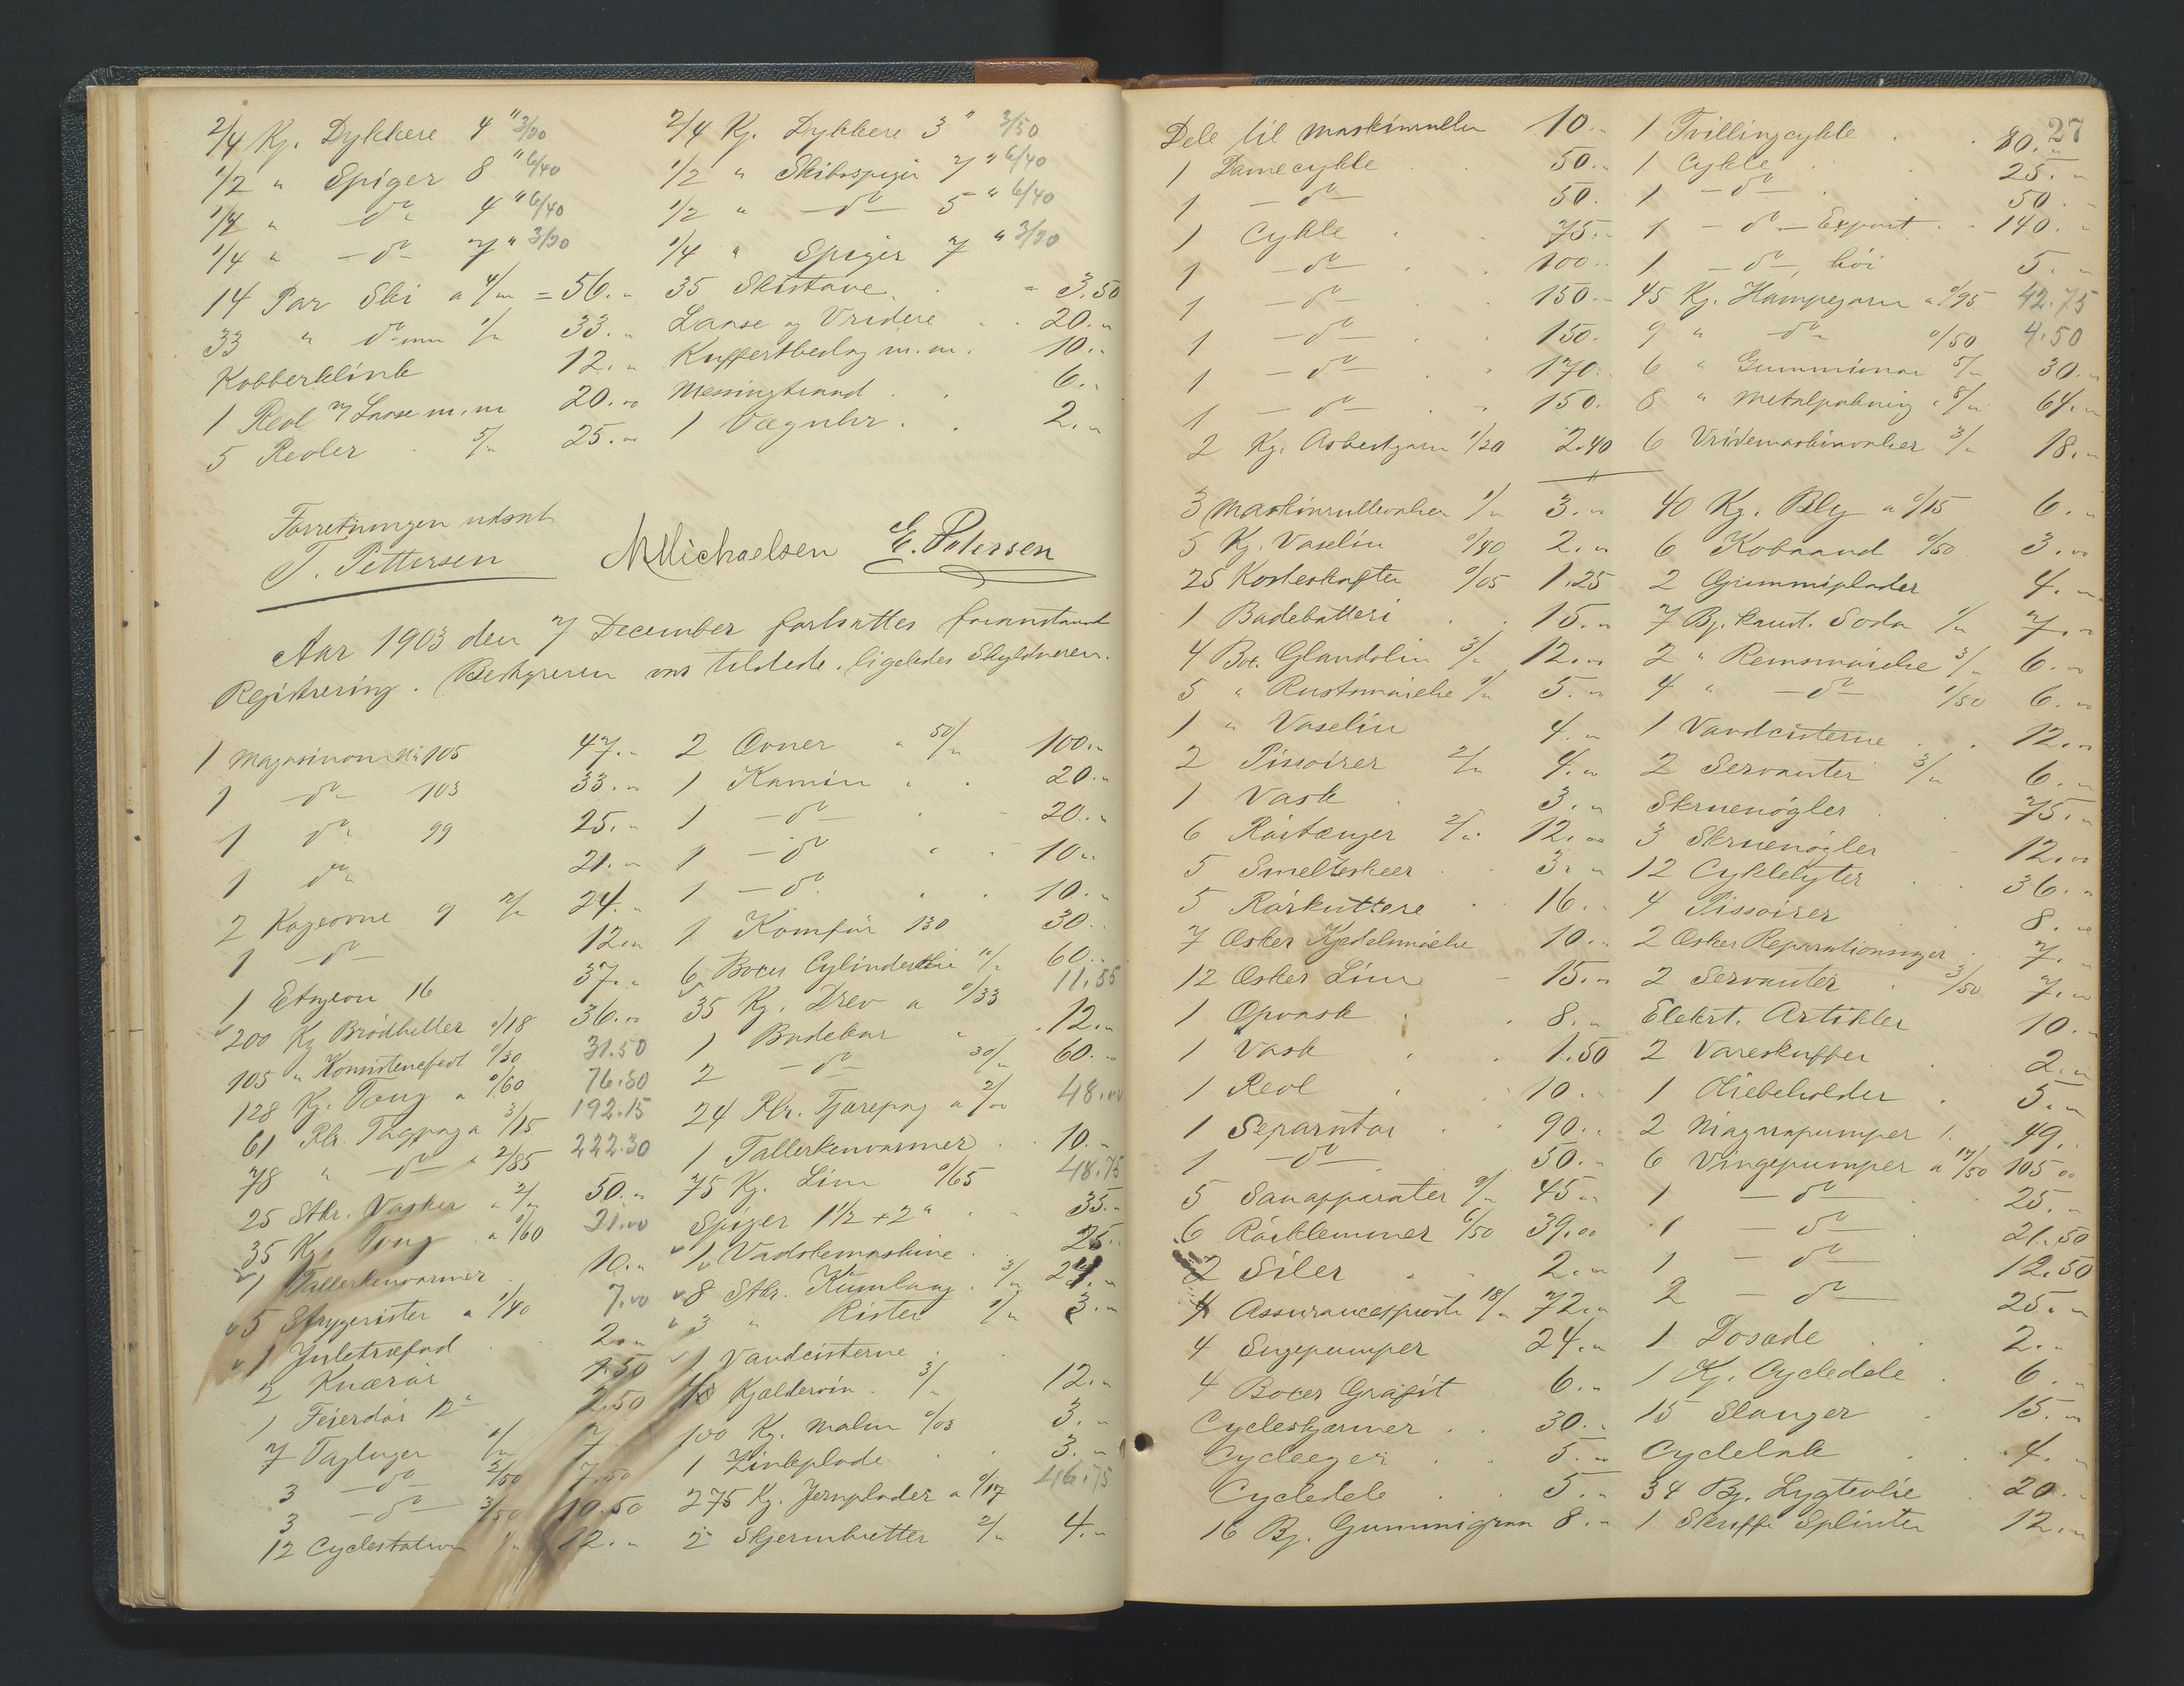 2/4 Kg. Dykkere 4" 3/20 2/4 Kg. Dykkere 3" 3/50
1/2 " Spiger 8" 6/40 1/2 " Skibsspiger 7" 6/40
1/4 " - do - 4" 6/40 1/2 " - do - 5" 6/40
1/4 " - do - 7" 3/20 1/4 " Spiger 7" 3/20
14 Par Ski a 4/" = 56." 35 Skistave = 3.50
33 " do 1/" 33." Laase og Vridere 20."
Kobberklink 12." Kuffertbeslag m.m. 10."
1 Reol Laase m.m 20." Messingtraad 6."
5 Reoler 5/" 25." 1 Væguhr 2."
Forretningen udsat
T. Pettersen M Michaelsen E. Petersen
Aar 1903 den 7 December fortsattes foranstaaende
Registrering. Bestyreren var tilstede, ligeledes Skyldneren.
1 Magasinovn No 105 47." 2 Ovner a 50/" 100."
1 do 103 33." 1 Kamin 20."
1 do 99 25." 1 - do - 20."
1 do 21." 1 - do - 10."
2 Kogeovne 9 24." 1 - do - 10."
1 - do - 12." 1 Komfür 130 30."
1 Etageovn 16 37." 6 Boxer Cylinderolie 10/" 60."
200 Kg Brödheller 0/18 36." 35 Kg. Drev a 0/33 11.55
105 " Konsistensfedt 0/30 31.50 1 Badekar 12."
128 Kg. Toug a 0/60 76.80 2 - do - 30/" 60."
61 Rlr. Tagpap a 3/15 192.15 24 Rlr. Tjærepap a 2/00 48.00
78 " - do - a 2/85 222.30 1 Tallerkenvarmer 10."
25 Stkr. Vasker a 2/" 50." 75 Kg. Lim 0/65 48.75
35 Kg. Toug a 0/60 21.00 Spiger 1 1/2 + 2" 35."
1 Tallerkenvarmer 10." 1 Vadskemaskine 25."
5 Strygerister a 1/40 7.00 8 Stkr. Kumlaag 3/" 24."
1 Juletræfod 2." 3 " Rister 1/" 3."
2 Knærör 1.50 1 Vandcisterne
1 Feierdör 12" 2.50 Kjældervin. 3/" 12."
7 Tagluger 1/" 7. 100 Kg. Malm 0/03 3."
3 - do - 2/50 7.50 1 Zinkplade 3."
3 - do - 3/50 10.50 275 Kg. Jernplader a 0/17 46.75
12 Cyclestativer 1/" 12." 2 Skjermbretter 2/" 4."
27
Dele til Maskinruller 10." 1 Tvillingcykle 80."
1 Damecykle 50." 1 Cykle 25."
1 - do - 50. 1 - do - 50."
1 Cykle 75." 1 - do - Export 140."
1 - do - 100." 1 - do -, höi 5."
1 - do - 150." 45 Kg. Hampegarn a 0/95 42.75
1 - do - 150. 9 " - do - 0/50 4.50
1 - do - 170. 6 " Gummisnor 5/" 30."
1 - do - 150. 8 " Metalpakning 8/" 64."
2 Kg. Asbestgarn 1/20 2.40 6 Vridemaskinvalser 3/" 18."
3 Maskinrullevalser 1/" 3." 40 Kg. Bly a 0/15 6."
5 Kg. Vaselin 0/40 2." 6 Kobaand 0/50 3."
25 Kosteskafter 0/05 1.25 2 Gummiplader 4."
1 Badebatteri 15." 7 Bx. kaust. Soda 1/" 7."
4 Box. Glandolin 3/" 12." 2 " Remsmörelse 3/" 6."
5 " Rustsmörelse 1/" 5." 4 " - do - 1/50 6."
1 " Vaselin 4." 1 Vandcisterne 12."
2 Pissoirer 2/" 4." 2 Servanter 3/" 6."
1 Vask 3." Skruenögler 75."
6 Rörtænger 2/" 12." 3 Skruenögler 12."
5 Smelteskeer 3." 12 Cyklelygter 36."
5 Rörkuttere 16." 4 Pissoirer 8."
7 Æsker Kjedelsmörelse 10." 2 Æsker Reparationssager 7."
12 Æsker Lim 15." 2 Servanter 3/50 7."
1 Opvask 8." Elekrt. Artikler 10."
1 Vask 1.50 2 Vareskuffer 2."
1 Reol 10." 1 Oliebeholder 5."
1 Separator 90." 2 Niagarapumper 49.
1 - do - 50." 6 Vingepumper a 17/50 105."
5 Sanapparater 9/" 45." 1 - do - 25."
6 Rörklemmer 6/50 39.00 1 - do - 21.50
2 Siler 2." 1 - do - 12.50
4 Assurancespröite 18/" 72." 2 - do - 25."
4 Sugepumper 24." 1 Dosade 2."
4 Boxer Grafit 6." 1 Kg. Cycledele 6."
Cycleskjærmer 30." 15 Slanger 15."
Cycleeger 5." Cyclelak 4."
Cycledele 5." 34 Bx. Lygteolie 20."
16 Bx. Gummigran 8." 1 Skuffe Splinter 12."